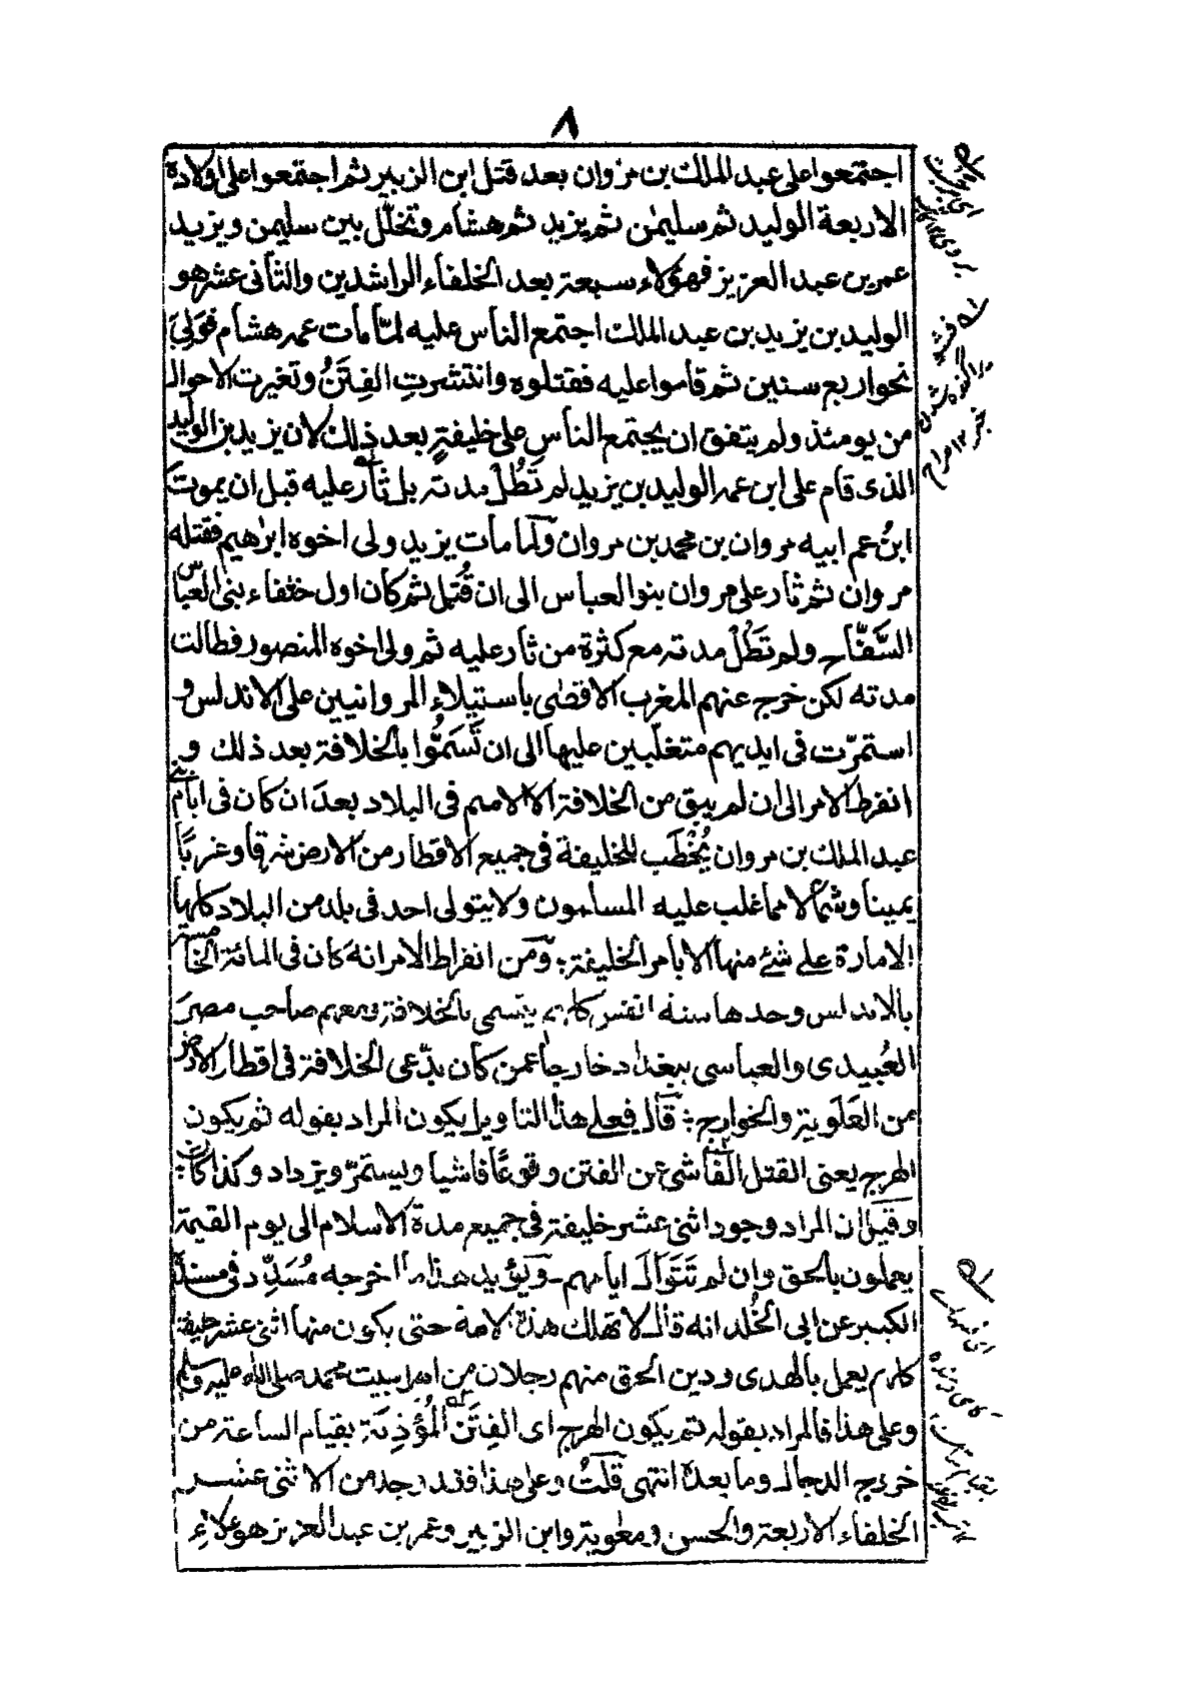 ٨
اجتمعوا على عبد الملك بن مروان بعد قتل ابن الزبير ثم اجتمعوا على اولاده
الاربعة الوليد ثم سليمٰن ثم يزيد ثم هشام وتخلّل بين سليمن ويزيد
عمر بن عبد العزيز فهؤلاء سبعة بعد الخلفاء الراشدين والثانى عشر هو
الوليد بن يزيد بن عبد الملك اجتمع الناس عليه لمّا مات عمه هشام فوَلِىَ
نحو اربع سنين ثم قاموا عليه فقتلوه وانتشرتِ الفِتَنُ وتغيرت الاحوال
من يومئذ ولم يتفق ان يجتمع الناس على خليفةٍ بعد ذلك لان يزيد بن الوليد
الذى قام على ابن عمه الوليد بن يزيد لم تَطُلْ مدته بل ثار عليه قبل ان يموت
ابنُ عم ابيه مروان بن محمد بن مروان ولما مات يزيد ولى اخوه ابرٰهيم فقتله
مروان ثم ثار على مروان بنو العباس الى ان قُتِل ثم كان اول خلفاء بنى العباس
السَّفّاح ولم تَطُلْ مدته مع كثرة من ثار عليه ثم ولى اخوه المنصور فطالت
مدته لكن خرج عنهم المغرب الاقصٰى باستيلاء المروانيين على الاندلس و
استمرّت فى ايديهم متغلّبين عليها الى ان تَسَمُّوا بالخلافة بعد ذلك و
انفرط الامر الى ان لم يبق من الخلافة الا الاسم فى البلاد بعدَ ان كان فى ايام بنى
عبد الملك بن مروان يُخْطَب للخليفة فى جميع الاقطار من الارض شرقاً وغرباً
يميناً وشمالا مما غلب عليه المسلمون ولا يتولى احد فى بلد من البلاد كلها
الامارة على شئ منها الا بأمر الخليفة ؛ ومن انفراط الامر انه كان فى المائة الخامسة
بالاندلس وحدها ستة انفس كلهم يتسمى بالخلافة ومعهم صاحب مصرَ
العُبيدى والعباسى ببغداد خارجاً عمن كان يدّعى الخلافة فى اقطار الارض
من العَلَوية والخوارج ؛ قال فعلى هذا التاويل يكون المراد بقوله ثم يكون
الهرج يعنى القتل الفاشى عن الفتن وقوعًا فاشيا ويستمرّ ويزداد وكذا كان ؛
وقيل ان المراد وجود اثنى عشر خليفة فى جميع مدة الاسلام الى يوم القيمة
يعملون بالحق وان لم تَتَوالَ ايامهم ـ ويؤيد هذا ما اخرجه مُسَدِّد فى مسنده
الكبير عن ابى الخُلد انه قال لا تهلك هذه الامة حتى يكون منها اثنى عشر خليفة
كلهم يعمل بالهدى ودين الحق منهم رجلان من اهل بيت محمد صلى الله عليه وسلم
وعلى هذا فالمراد بقوله ثم يكون الهرج اى الفِتَن الْمُؤذِنَة بقيام الساعة من
خروج الدجال وما بعده انتهى قلتُ وعلى هذا فقد وجد من الاثنى عشر
الخلفاء الاربعة والحسن ومعٰوية وابن الزبير وعمر بن عبد العزيز هؤلاءِ